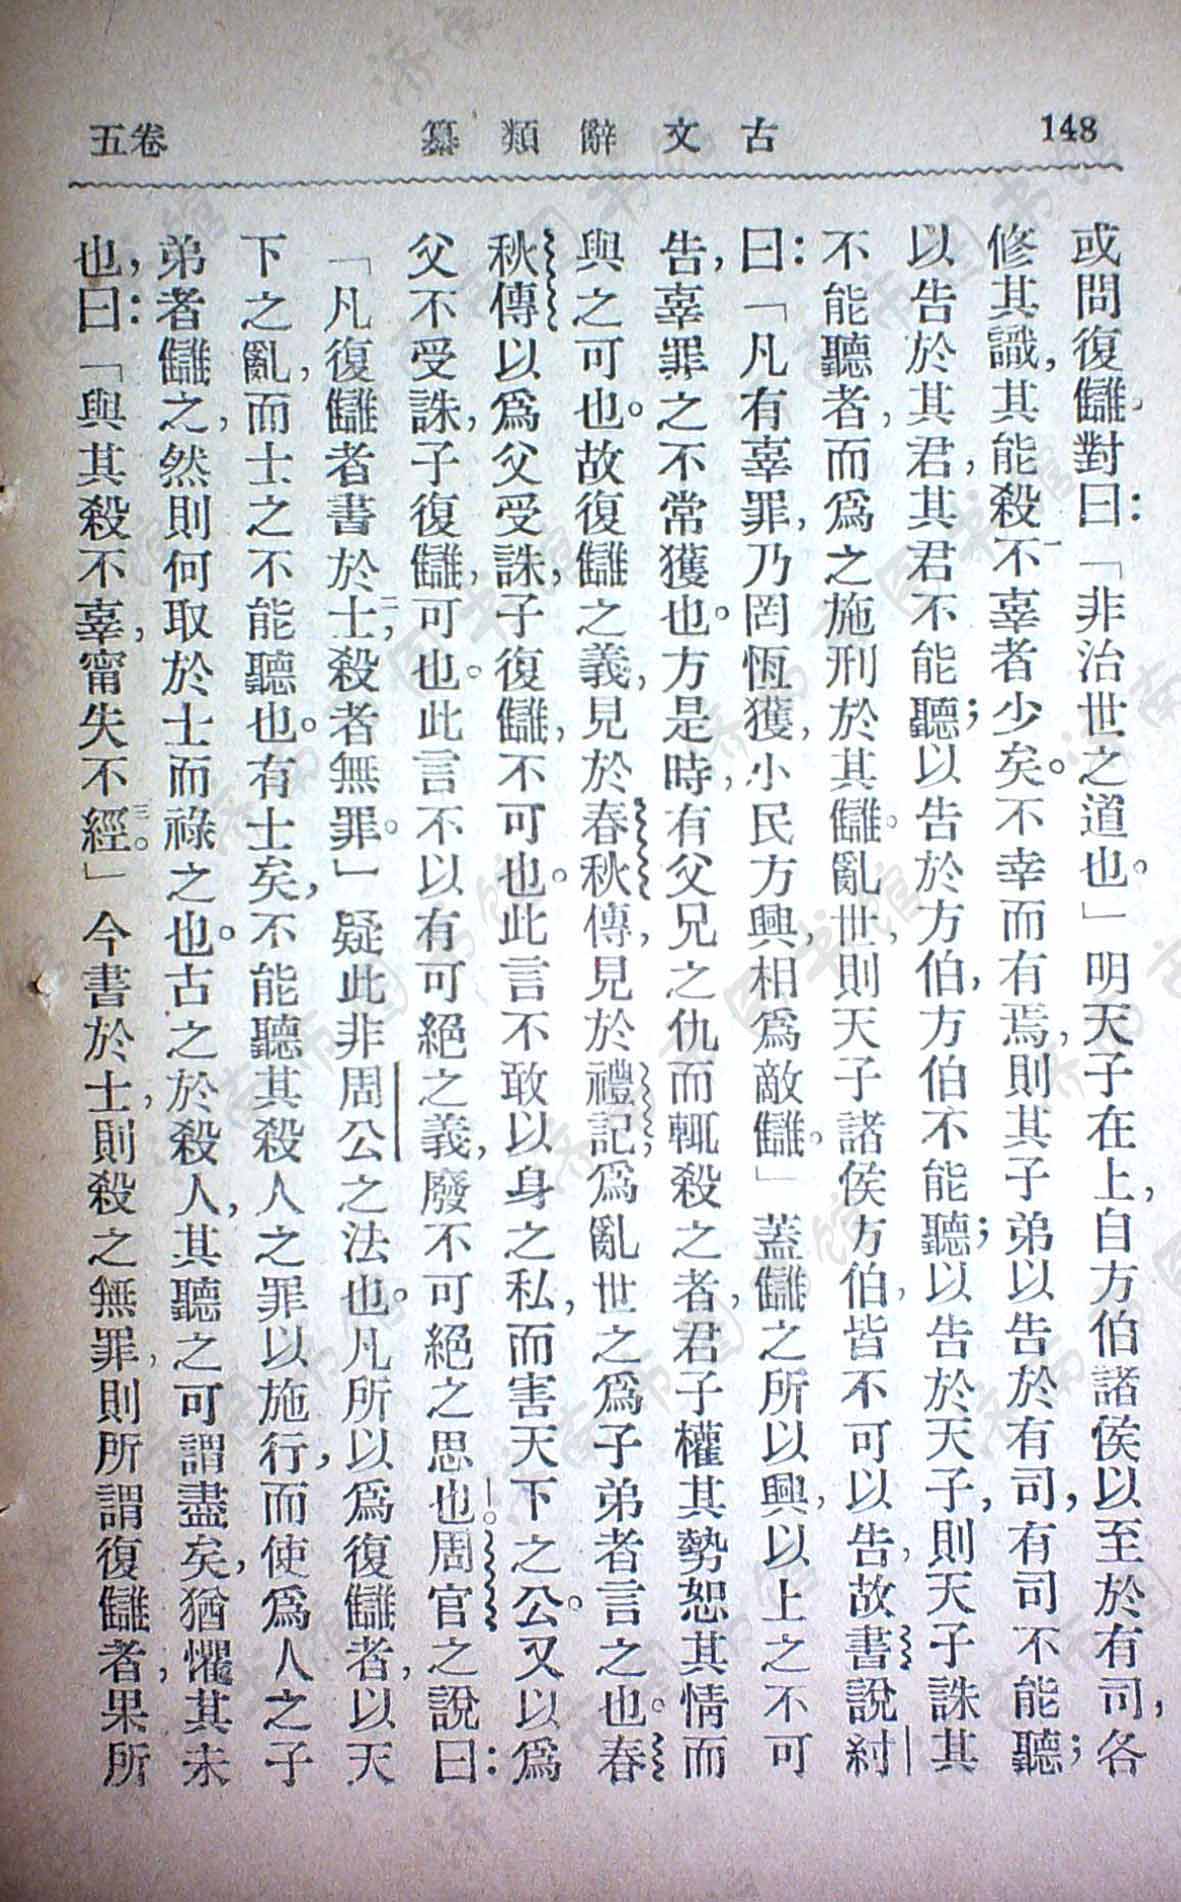 148
古文辭類纂
卷五
或問復讎,對曰:「非治世之道也。」明天子在上,自方伯諸侯以至於有司,各
修其識,其能殺不一辜者少矣。不幸而有焉,則其子弟以告於有司,有司不能聽;
以告於其君,其君不能聽;以告於方伯,方伯不能聽;以告於天子,則天子誅其
不能聽者,而爲之施刑於其讎。亂世,則天子諸侯方伯,皆不可以告,故書說紂
曰:「凡有辜罪,乃罔恆獲,小民方興,相爲敵讎。」蓋讎之所以興,以上之不可
告,辜罪之不常獲也。方是時,有父兄之仇而輒殺之者,君子權其勢恕其情而
與之可也。故復讎之義,見於春秋傳,見於禮記,爲亂世之爲子弟者言之也。春
秋傳以爲父受誅,子復讎,不可也。此言不敢以身之私,而害天下之公。又以爲
父不受誅,子復讎,可也。此言不以有可絕之義,廢不可絕之思也一。周官之說曰:
「凡復讎者書於士二,殺者無罪。」疑此非周公之法也。凡所以爲復讎者,以天
下之亂,而士之不能聽也。有士矣,不能聽其殺人之罪以施行,而使爲人之子
弟者讎之,然則何取於士而祿之也。古之於殺人,其聽之可謂盡矣,猶懼其未
也,曰:「與其殺不辜,甯失不經三。」今書於士,則殺之無罪,則所謂復讎者,果所